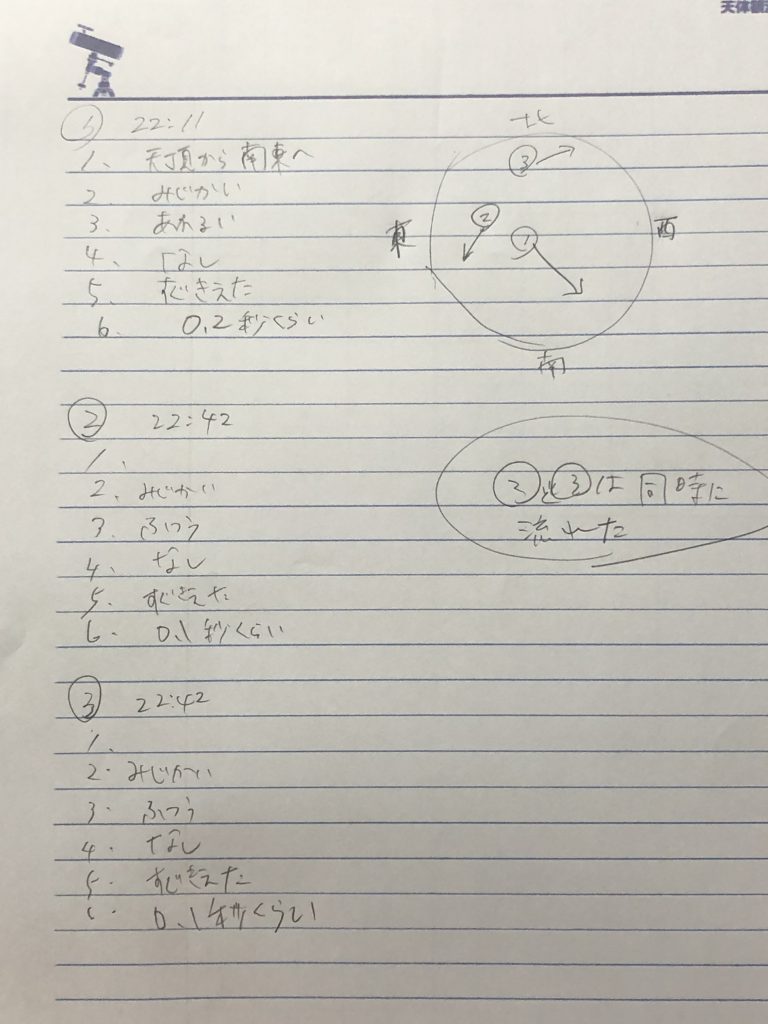 天体観
① 22:11
1、 天頂から南東へ
2 みじかい
3. あかるい
4、 なし
5. すぐきえた
6. 0.2秒くらい
北
東
西
南
③
②
①
② 22:42
1、
2、みじかい
3. ふつう
4、 なし
5. すぐきえた
6. 0.1秒くらい
②と③は同時に
流れた
③ 22:42
1、
2. みじかい
3. ふつう
4. なし
5. すぐきえた
6. 0.1秒くらい